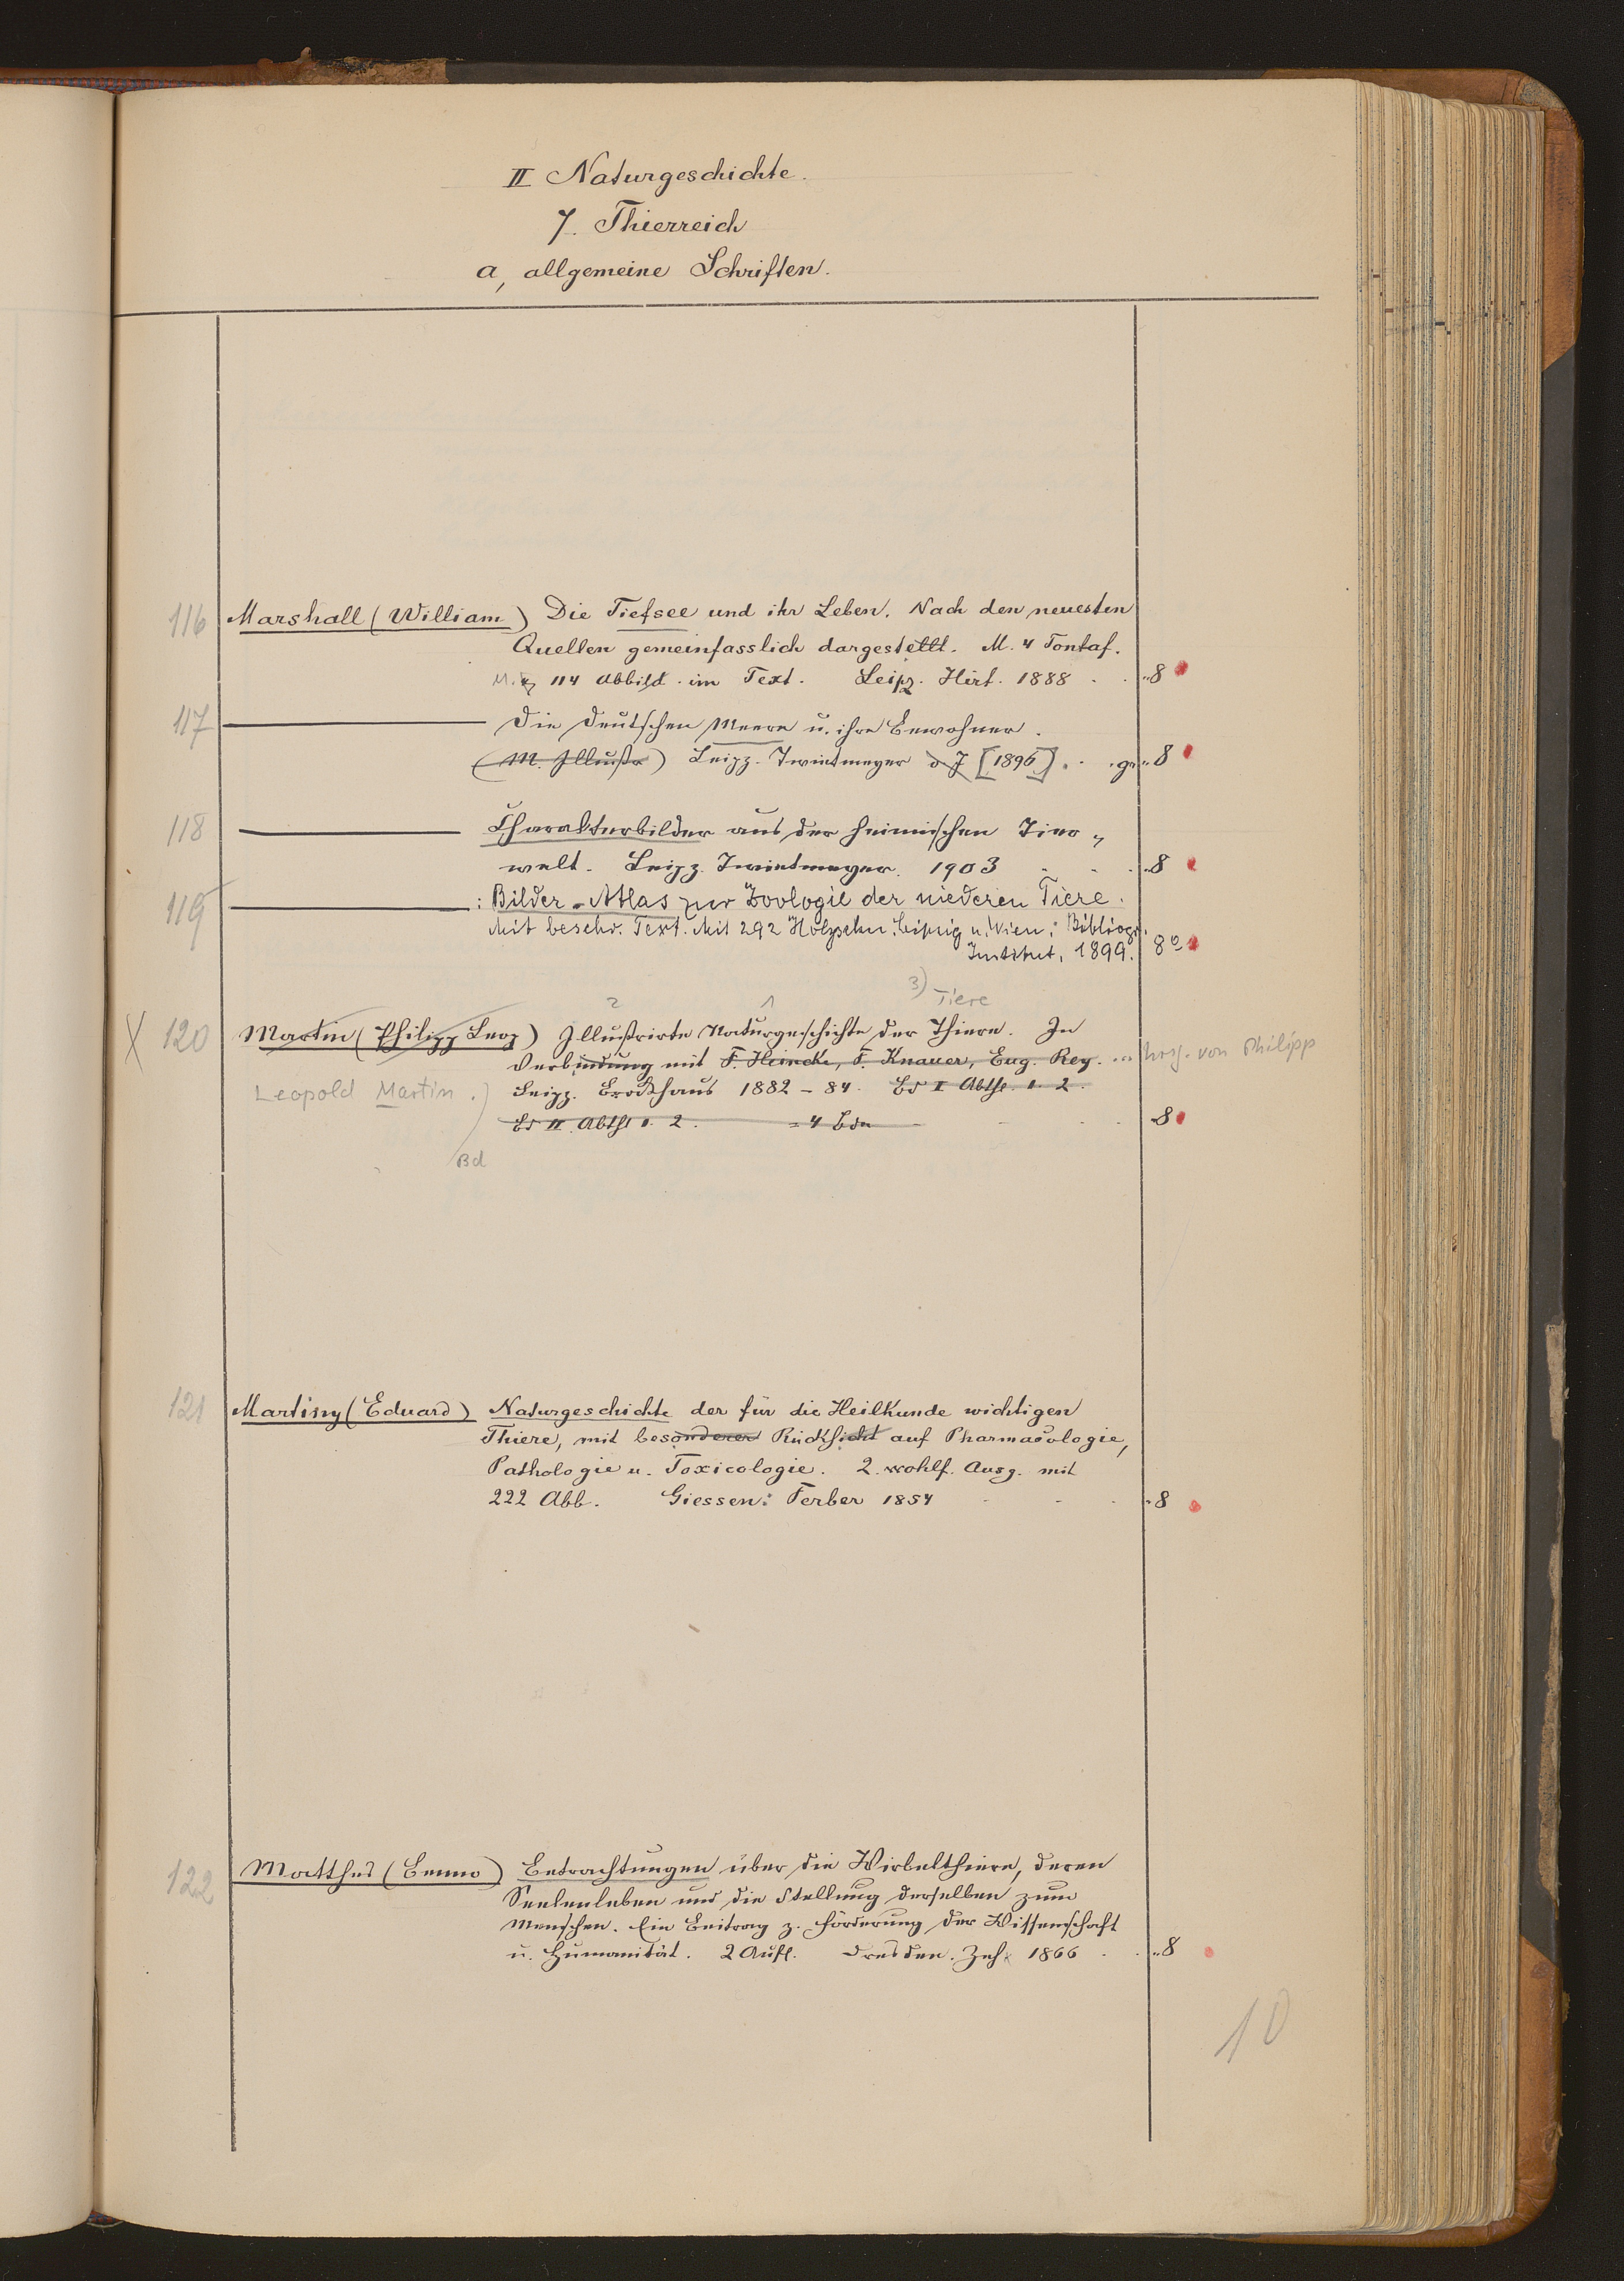 II Naturgeschichte.
7. Thierreich
a, allgemeine Schriften.
116 Marshall (William) Die Tiefsee und ihr Leben. Nach den neuesten
Quellen gemeinfasslich dargestellt. M. 4 Tontaf.
114 Abbild. im Text. Leipz. Hirt. 1888 . . „8
117 Die deutschen Meere u. ihre Bewohner.
(M. Illustr) Leipz. Twietmeyer o J [1896] . . gr „8
118 Charakterbilder aus der heimischen Tier-
welt. Leipz. Twietmeyer. 1903 . . . „8
119 : Bilder-Atlas zur Zoologie der niederen Tiere.
Mit beschr. Text. Mit 292 Holzschn. Leipzig u. Wien: Bibliogr.
Institut, 1899. 8°
2 1 3) Tiere
X 120 Martin (Philipp Leop) Illustrirte Naturgeschichte der Thiere. In
Verbindung mit F. Heincke, F. Knauer, Eug. Rey. ... hrsg. von Philipp
Leopold Martin.) Leipz. Brockhaus 1882 - 84. Bd I Abth. 1. 2.
Bd II. Abth 1. 2. = 4 Bde . . 8
Bd
121 Martiny (Eduard) Naturgeschichte der für die Heilkunde wichtigen
Thiere, mit besonderer Rücksicht auf Pharmacologie,
Pathologie u. Toxicologie. 2. wohlf. Ausg. mit
222 Abb. Giessen: Ferber 1854 . . . „8
122 Matthes (Benno) Betrachtungen über die Wirbelthiere, deren
Seelenleben und die Stellung derselben zum
Menschen. Ein Beitrag z. Förderung der Wissenschaft
u. Humanität. 2 Aufl. Dresden. 1866 . . „8
10